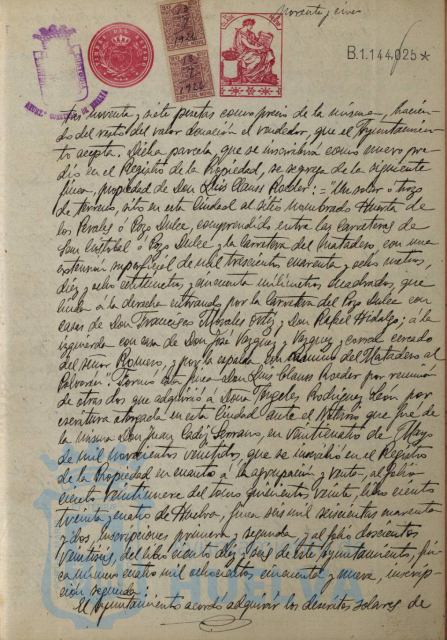 noventa y cinco
B.1.144.025*
12
7
1926
12
7
1926
tas noventa y siete pesetas como precio de la misma, hacien-
do del resto del valor donación el vendedor, que el Ayuntamien-
to acepta. Dicha parcela, que se inscribirá como nuevo pre-
dio en el Registro de la Propiedad, se segrega de la siguiente
finca, propiedad de Don Luis Clauss Roeder: "Un solar ó trozo
de terreno, sito en esta Ciudad al sitio nombrado Huerta de
los Perales ó Pozo Dulce, comprendido entre las Carreteras de
San Cristobal ó Pozo Dulce y la Carretera del Matadero, con una
extensión superficial de mil trescientos cuarenta y ocho metros,
diez y ocho centímetros, y cincuenta milímetros cuadrados, que
linda á la derecha entrando por la Carretera del Pozo Dulce con
casas de Don Francisco Morales Ortiz y Don Rafael Hidalgo; á la
izquierda con casa de Don José Vazquez y Vazquez y corral cercado
del Señor Romero, y por la espalda con camino del Matadero al
Calvario. Formó esta finca Don Luis Clauss Roeder por reunión
de otras dos que adquirió á Doña Angeles Rodriguez León por
escritura otorgada en esta Ciudad ante el Notario que fué de
la misma Don Juan Cadiz Serrano, en veinticuatro de Mayo
de mil novecientos veintidos, que se inscribió en el Registro
de la Propiedad en cuanto á la agrupación y venta, al folio
ciento veintinueve del tomo quinientos veinte, libro ciento
treinta y cuatro de Huelva, finca seis mil seiscientos cuarenta
y dos, inscripciones primera y segunda y al folio doscientos
veintiseis, del libro ciento diez y seis de este Ayuntamiento, fin-
ca número cuatro mil ochocientos cincuenta y nueve, inscrip-
ción segunda.
El Ayuntamiento acordó adquirir los descritos solares de
HUELVA